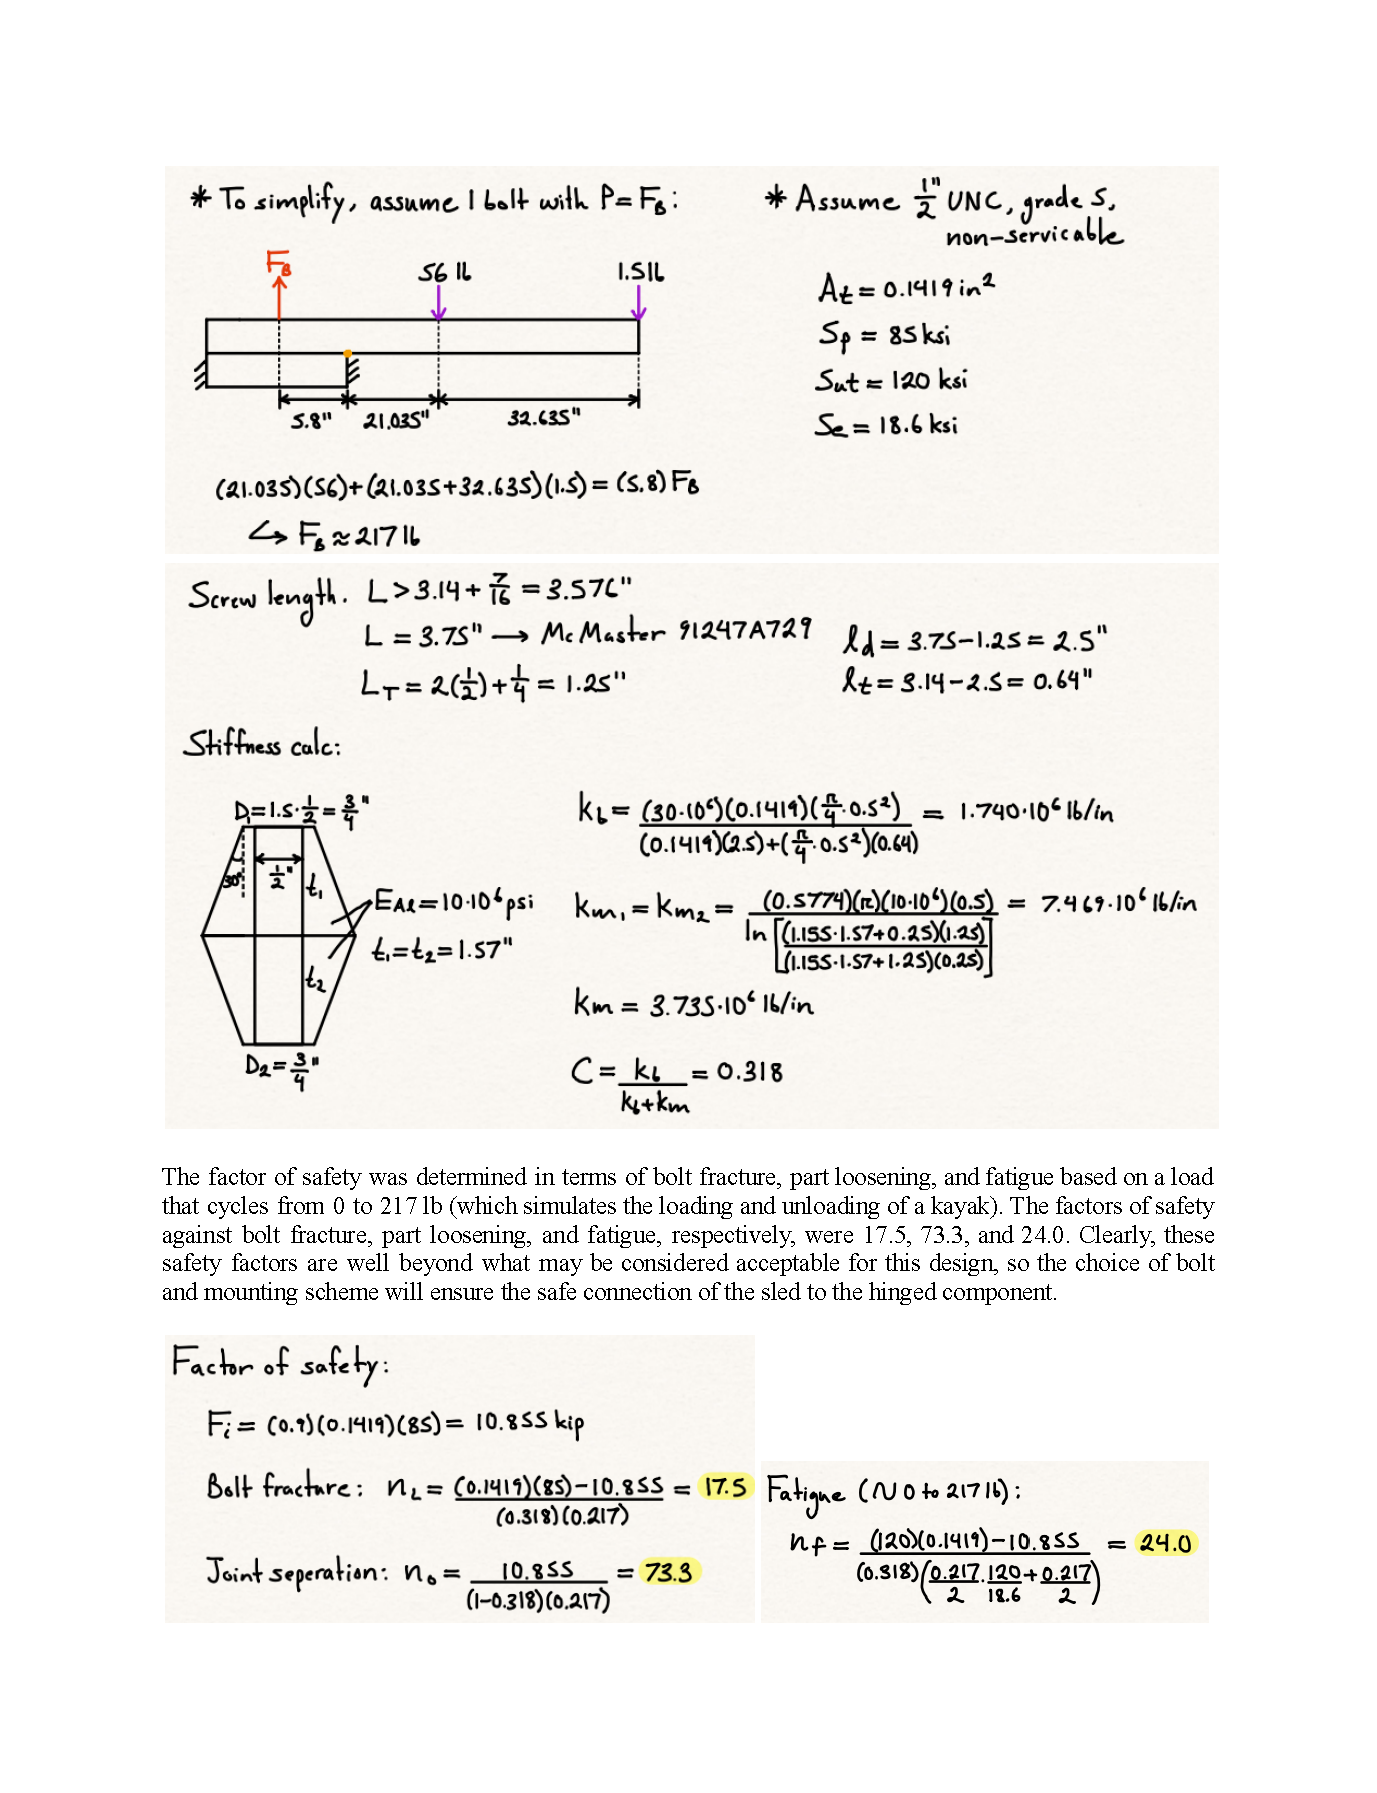 * To simplify, assume 1 bolt with P = F_B:
F_B
56 lb
1.5 lb
5.8"
21.035"
32.635"
(21.035)(56)+(21.035+32.635)(1.5) = (5.8) F_B
↳ F_B ≈ 217 lb
* Assume 1/2" UNC, grade 5,
non-servicable
A_t = 0.1419 in²
S_p = 85 ksi
S_ut = 120 ksi
S_e = 18.6 ksi
Screw length. L > 3.14 + 7/16 = 3.576"
L = 3.75" → McMaster 91247A729
L_T = 2(1/2) + 1/4 = 1.25"
l_d = 3.75 - 1.25 = 2.5"
l_t = 3.14 - 2.5 = 0.64"
Stiffness calc:
D_1 = 1.5·1/2 = 3/4"
30°
1/2"
t_1
E_Al = 10·10⁶ psi
t_1 = t_2 = 1.57"
t_2
D_2 = 3/4"
k_b = (30·10⁶)(0.1419)(π/4·0.5²) / (0.1419)(2.5)+(π/4·0.5²)(0.64) = 1.740·10⁶ lb/in
k_m1 = k_m2 = (0.5774)(π)(10·10⁶)(0.5) / ln[(1.155·1.57+0.25)(1.25) / (1.155·1.57+1.25)(0.25)] = 7.469·10⁶ lb/in
k_m = 3.735·10⁶ lb/in
C = k_b / k_b+k_m = 0.318
The factor of safety was determined in terms of bolt fracture, part loosening, and fatigue based on a load
that cycles from 0 to 217 lb (which simulates the loading and unloading of a kayak). The factors of safety
against bolt fracture, part loosening, and fatigue, respectively, were 17.5, 73.3, and 24.0. Clearly, these
safety factors are well beyond what may be considered acceptable for this design, so the choice of bolt
and mounting scheme will ensure the safe connection of the sled to the hinged component.
Factor of safety:
F_i = (0.9)(0.1419)(85) = 10.855 kip
Bolt fracture: n_L = (0.1419)(85)-10.855 / (0.318)(0.217) = 17.5
Joint seperation: n_0 = 10.855 / (1-0.318)(0.217) = 73.3
Fatigue (N 0 to 217 lb):
n_f = (120)(0.1419)-10.855 / (0.318)(0.217/2·120/18.6+0.217/2) = 24.0